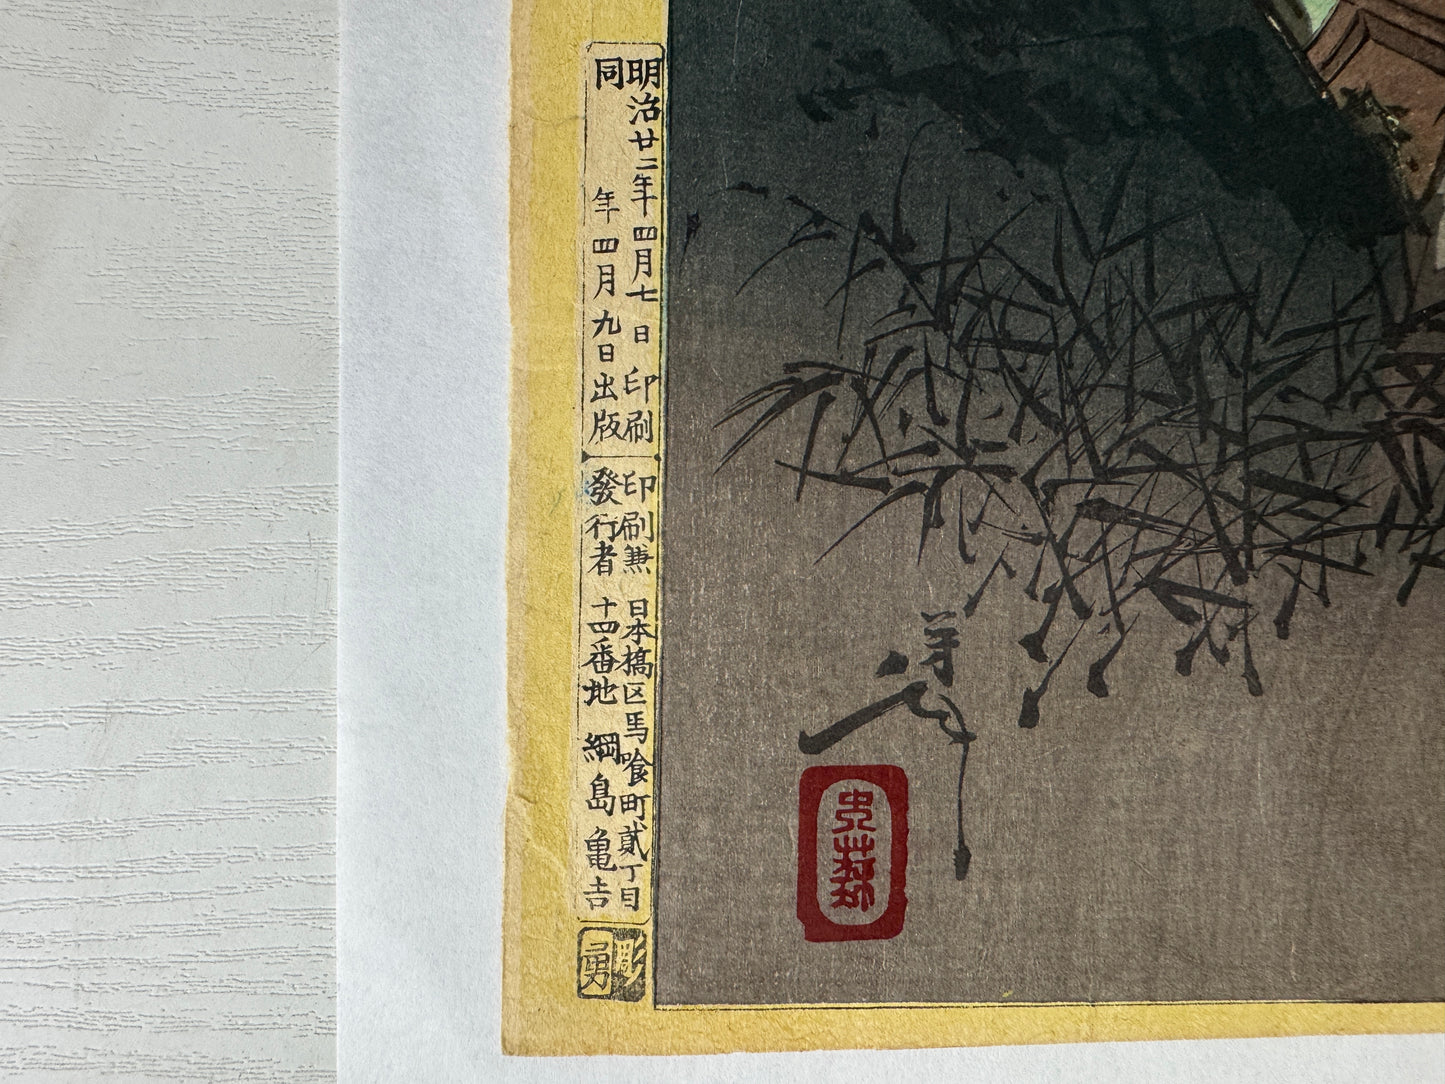 明治廿二年四月七日印刷
同 年四月九日出版
印刷兼
発行者
日本橋区馬喰町貳丁目
十四番地 綱島亀吉
彫勇
芳年